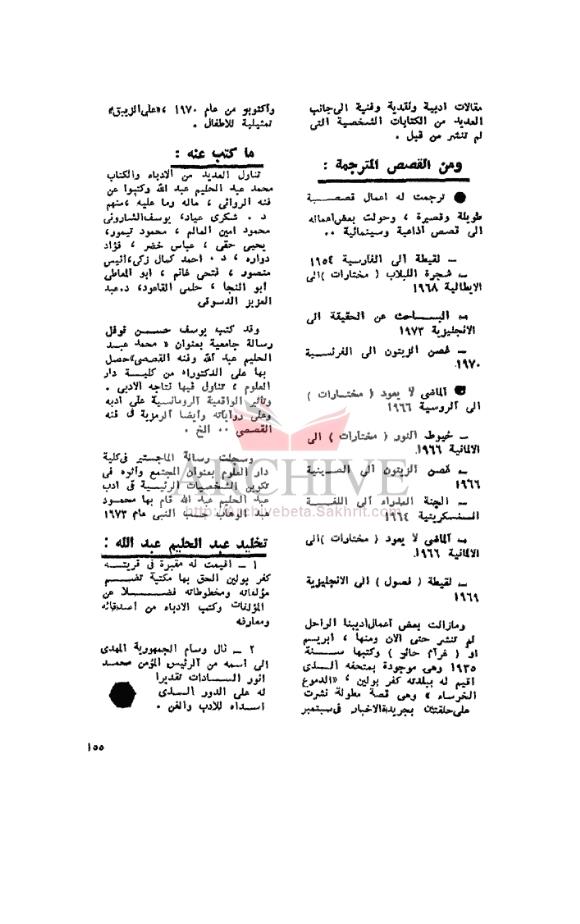 مقالات ادبية ونقدية وفنية الى جانب
العديد من الكتابات الشخصية التى
لم تنشر من قبل .
ومن القصص المترجمة :
● ترجمت له اعمال قصصية
طويلة وقصيرة ، وحولت بعض أعماله
الى قصص اذاعية وسينمائية ..
ـ لقيطة الى الفارسية ١٩٥٤
ـ شجرة اللبلاب ( مختارات ) الى
الايطالية ١٩٦٨
ـ البـاحث عن الحقيقة الى
الانجليزية ١٩٧٣
ـ غصن الزيتون الى الفرنسية
١٩٧٠
● الماضى لا يعود ( مختارات )
الى الروسية ١٩٦٦
ـ خيوط النور ( مختارات ) الى
الالمانية ١٩٦٦.
ـ غصن الزيتون الى الصينية
١٩٦٦
ـ الجنة العذراء الى اللغة
السنسكريتية ١٩٦٤
ـ الماضى لا يعود ( مختارات ) الى
الالمانية ١٩٦٦.
ـ لقيطة ( فصول ) الى الانجليزية
١٩٦٩
ومازالت بعض أعمال أديبنا الراحل
لم تنشر حتى الان ومنها ، ابريسم
او ( غرام حائر ) وكتبها سنة
١٩٣٥ وهى موجودة بمتحفه الذى
اقيم له ببلدته كفر بولين ، «الدموع
الخرساء » وهى قصة مطولة نشرت
على حلقتين بجريدة الاخبار فى سبتمبر
وأكتوبر من عام ١٩٧٠ ، «على الزيبق»
تمثيلية للاطفال .
ما كتب عنه :
تناول العديد من الادباء والكتاب
محمد عبد الحليم عبد الله وكتبوا عن
فنه الروائى ، ماله وما عليه ، منهم
د . شكرى عياد، يوسف الشارونى
محمود امين العالم ، محمود تيمور،
يحيى حقى ، عباس خضر ، فؤاد
دواره ، د . احمد كمال زكى، انيس
منصور ، فتحى غانم ، ابو المعاطى
ابو النجا ، حلمى القاعود، د.عبد
العزيز الدسوقى
وقد كتب يوسف حسن نوفل
رسالة جامعية بعنوان « محمد عبد
الحليم عبد الله وفنه القصصى» حصل
بها على الدكتوراه من كلية دار
العلوم ، تناول فيها نتاجه الادبى .
وتأثير الواقعية الرومانسية على ادبه
وعلى رواياته وأيضا الرمزية فى فنه
القصصى .. الخ .
وسجلت رسالة الماجستير فى كلية
دار العلوم بعنوان المجتمع وأثره فى
تكوين الشخصيات الرئيسية فى ادب
عبد الحليم عبد الله قام بها محمود
عبد الوهاب حسب النبى عام ١٩٧٣
تخليد عبد الحليم عبد الله :
١ ـ اقيمت له مقبرة فى قريته
كفر بولين الحق بها مكتبة تضم
مؤلفاته ومخطوطاته فضلا عن
المؤلفات وكتب الادباء من أصدقائه
ومعارفه
٢ ـ نال وسام الجمهورية المهدى
الى اسمه من الرئيس المؤمن محمد
انور السادات تقديرا
له على الدور الذى
اسداه للادب والفن .
١٥٥
ARCHIVE
http://Archivebeta.Sakhrit.com